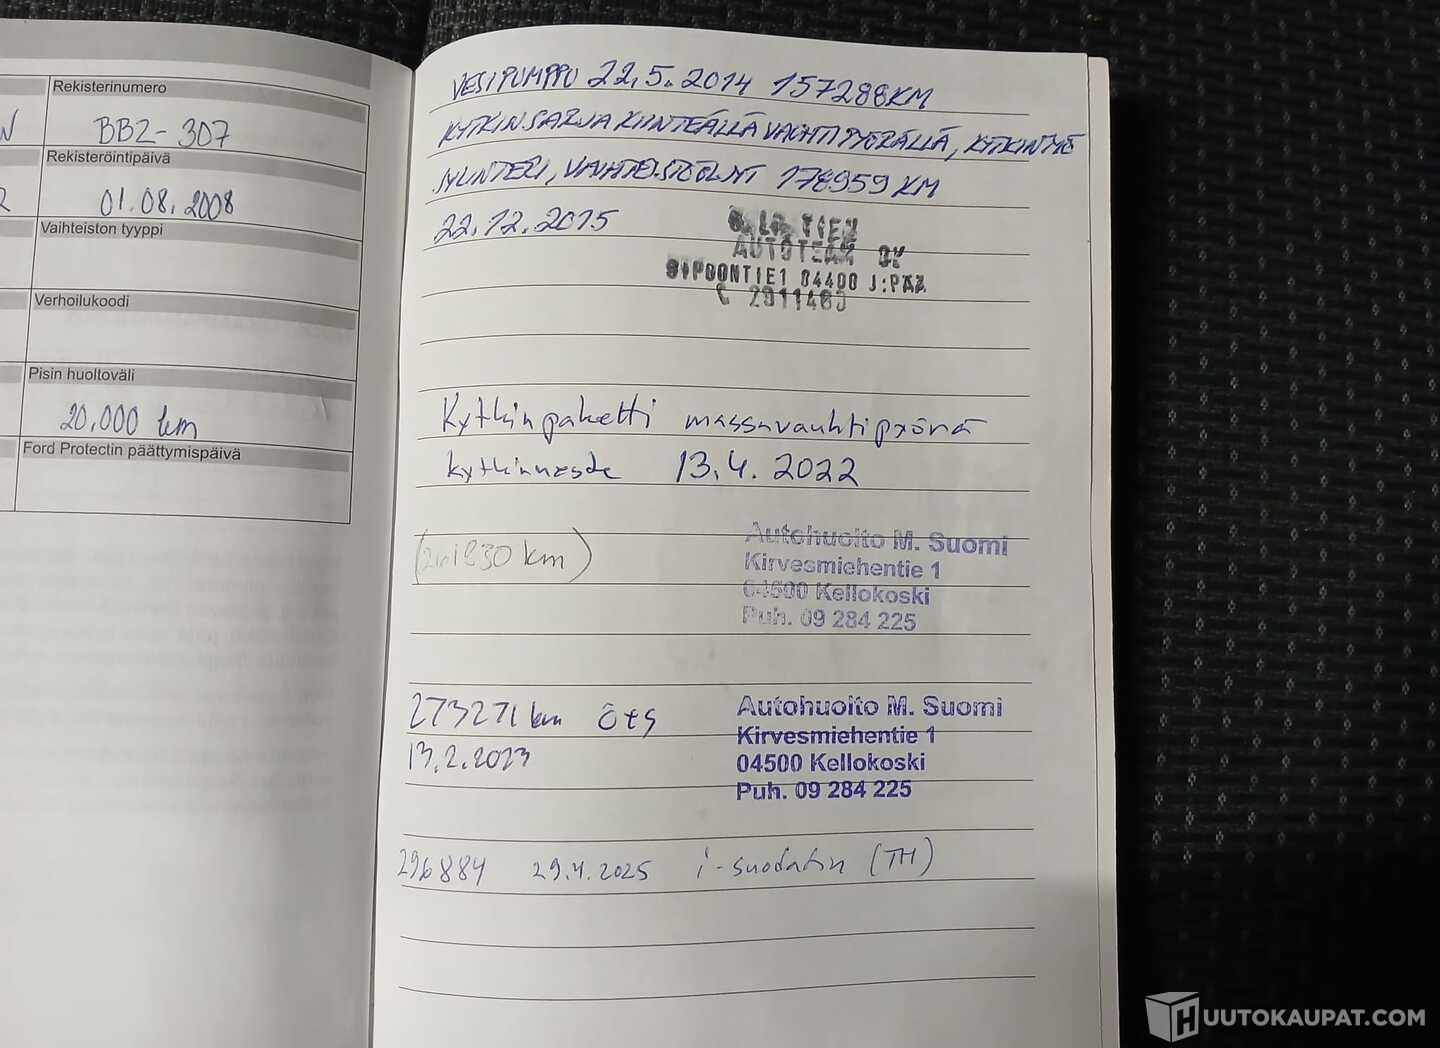 N
2
Rekisterinumero
BBZ-307
Rekisteröintipäivä
01.08.2008
Vaihteiston tyyppi
Verhoilukoodi
Pisin huoltoväli
20.000 km
Ford Protectin päättymispäivä
VESIPUMPPU 22.5.2014 157288KM
KYTKINSARJA KIINTEÄLLÄ VAUHTIPYÖRÄLLÄ, KYTKINTYÖ
SYLINTERI, VAIHTEISTOÖLJYT 178959 KM
22.12.2015
AUTOTEAM OY
SIPOONTIE1 04400 J:PÄÄ
2911460
Kytkinpaketti massavauhtipyörä
kytkinneste 13.4.2022
830 km)
Autohuolto M. Suomi
Kirvesmiehentie 1
04500 Kellokoski
Puh. 09 284 225
273271 km öts
13.2.2023
Autohuolto M. Suomi
Kirvesmiehentie 1
04500 Kellokoski
Puh. 09 284 225
296884 29.4.2025 i-suodatin (TH)
HUUTOKAUPAT.COM